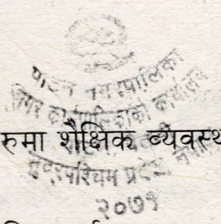 पाटन नगरपालिका
नगर कार्यपालिकाको कार्यालय
रुमा शैक्षिक व्यवस्थ
सुदूरपश्चिम प्रदेश, नेपाल
२०७१